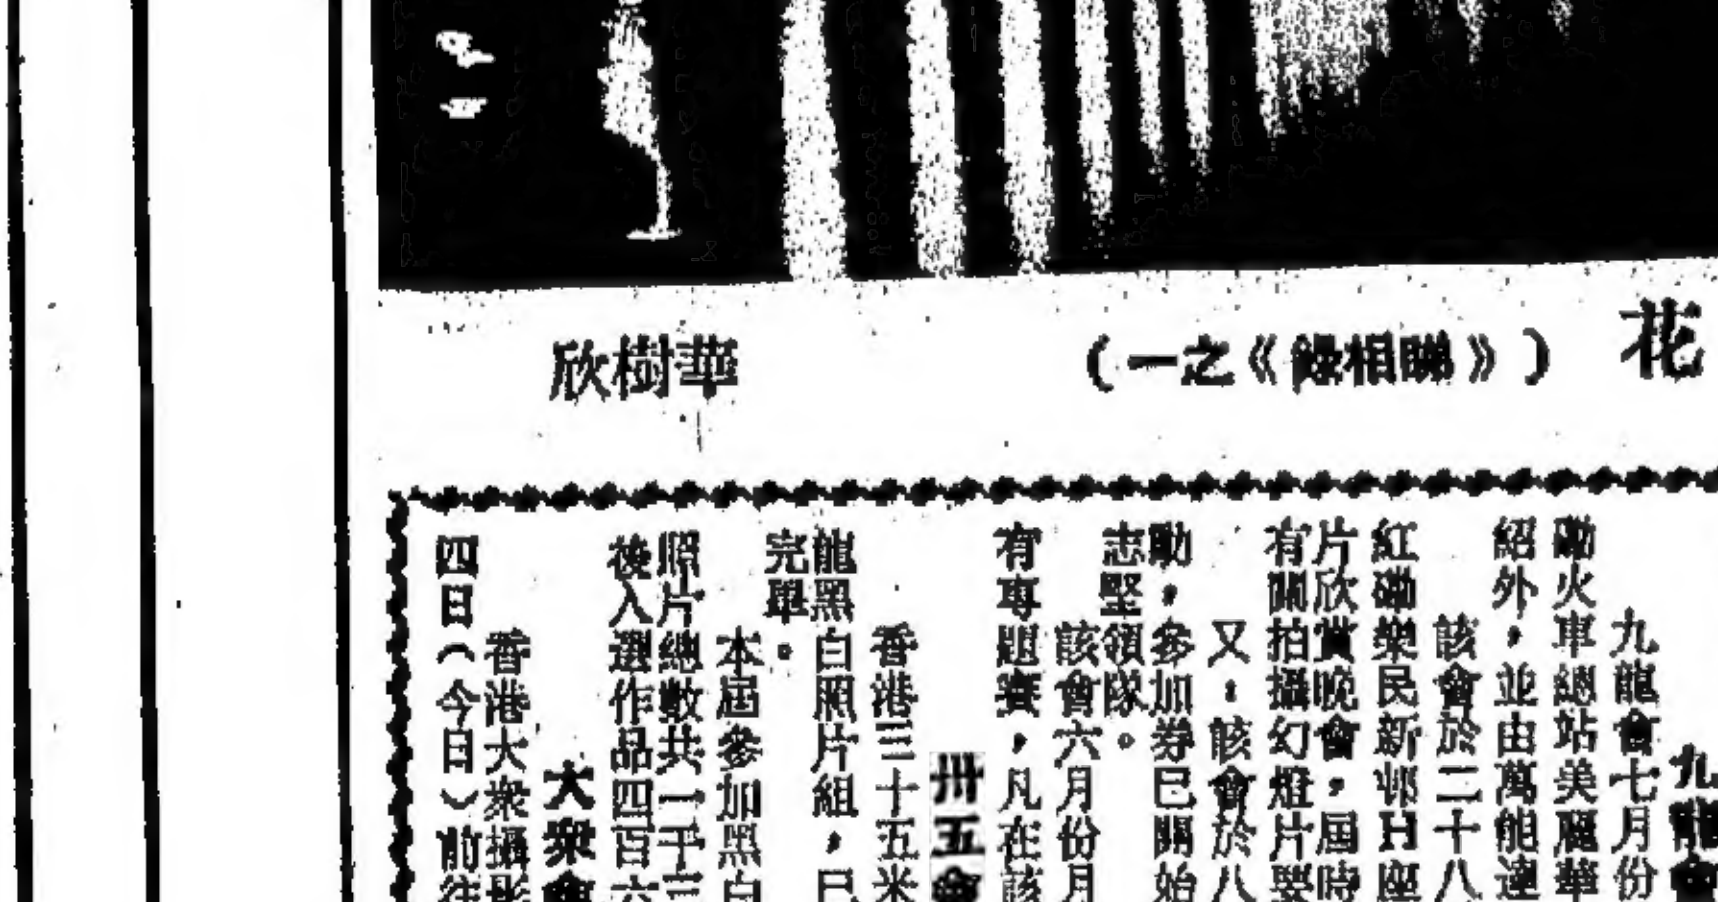 花
(一之《錄相睇》)
欣樹華
九龍會
九龍會七月份
磡火車總站美麗華
紹外，並由萬能達
該會於二十八
紅磡樂民新邨H座
片欣賞晚會，屆時
有關拍攝幻燈片
又：該會於八
助，參加券已開始
志堅領隊。
該會六月份月
有專題賽，凡在該
卅五會
香港三十五米
龍黑白照片組，已
完畢。
本屆參加黑白
照片總數共一千三
後入選作品四百六
大衆會
香港大衆攝影
四日（今日）前往